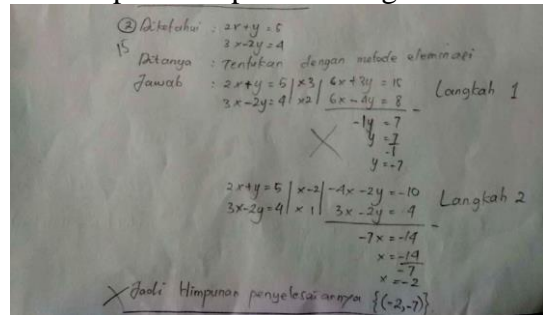 ② Diketahui : 2x+y = 5
3x-2y=4
15
Ditanya : Tentukan dengan metode eleminasi
Jawab : 2x+y = 5 | x3 | 6x+3y = 15
3x-2y=4 | x2 | 6x-4y = 8 -
Langkah 1
-1y = 7
y = 7/-1
y = -7
2x+y=5 | x-2 | -4x-2y = -10
3x-2y=4 | x 1 | 3x-2y = 4 -
Langkah 2
-7x = -14
x = -14/-7
x = -2
Jadi Himpunan penyelesaiannya {(-2,-7)}